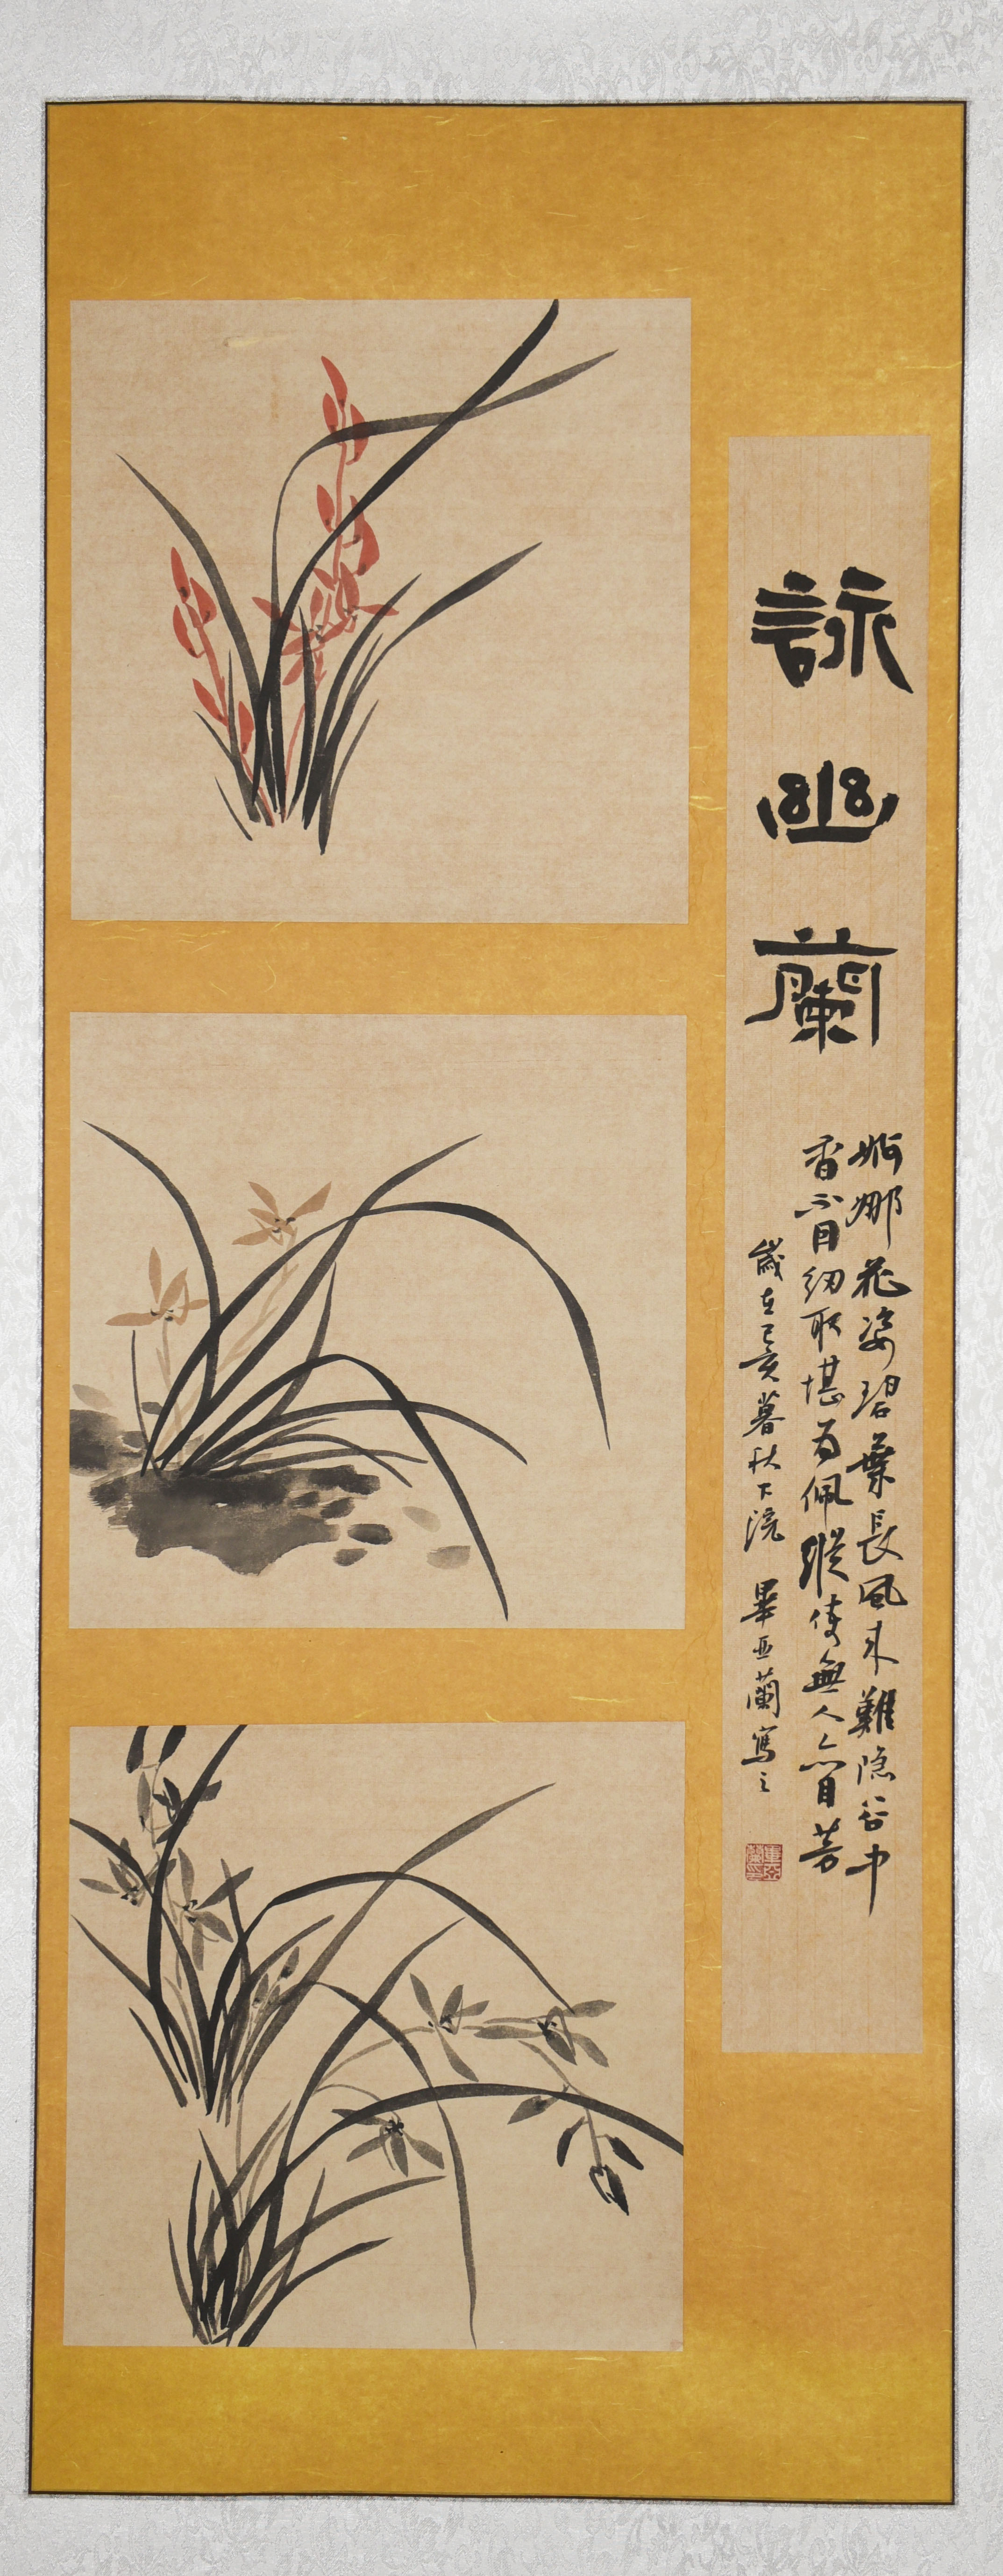 詠幽蘭
婀娜花姿碧葉長風来難隐谷中
香不自纫取堪为佩縱使無人亦自芳
歲在己亥暮秋下浣 畢亞蘭寫之